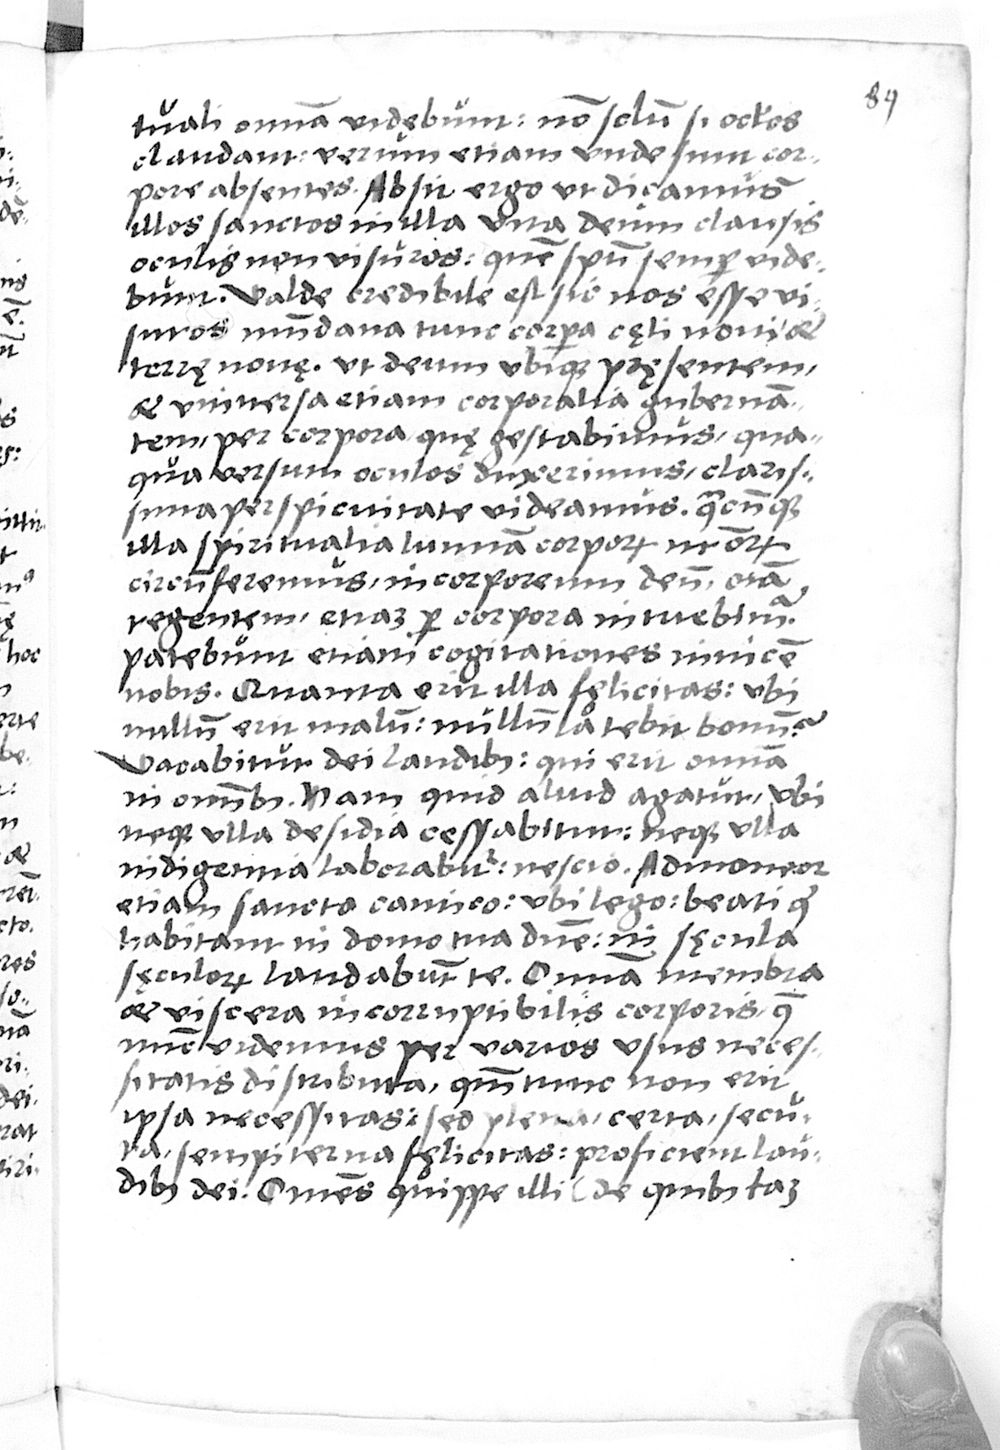 84
tuali omnia vidębunt: nō solū si oclos
claudant: verum etiam vnde sunt cor-
pore absentes. Absit ergo vt dicamus
illos sanctos in illa vita deum clausis
oculis non visuros: quē spū semꝑ vide-
bunt. Valde credibile est sic nos esse vi-
suros mūdana tunc corpa cęli noui, &
terrę nouę. vt deum vbiqꝫ pręsentem,
& vniuersa etiam corporalia gubernā-
tem, per corpora, quę gestabimus, qua-
qua versum oculos duxerimus, claris-
sima perspicuitate videamus. q̄cūqꝫ
illa spiritualia lumīa corporꝝ nr̄orꝝ
circūferemus, incorporeum deū, oīa
regentem, etiaꝫ ꝑ corpora intuebimꝰ.
patebunt etiam cogitationes inuicē
nobis. Quanta erit illa fęlicitas: vbi
nullū erit malū: nullū latebit bonū?
Vacabitur dei laudibꝫ: qui erit omīa
in omībꝫ. Nam quid aliud agatur, vbi
neqꝫ vlla desidia cessabitur: neqꝫ vlla
indigentia laborabit᷑: nescio. Admoneor
etiam sancto cantico: vbi lego: beati q̇
habitant in domo tua dn̄e: in sęcula
sęculorꝝ laudabūt te. Omīa membra
& viscera incorruptibilis corporis, q̄
nūc videmus per varios vsus neces-
sitatis distributa, qm̄ tunc non erit
ipsa necessitas: sed plena, certa, secu-
ra, sempiterna fęlicitas: proficient lau-
dibꝫ dei. Omēs quippe illi (de quibꝫ iaꝫ